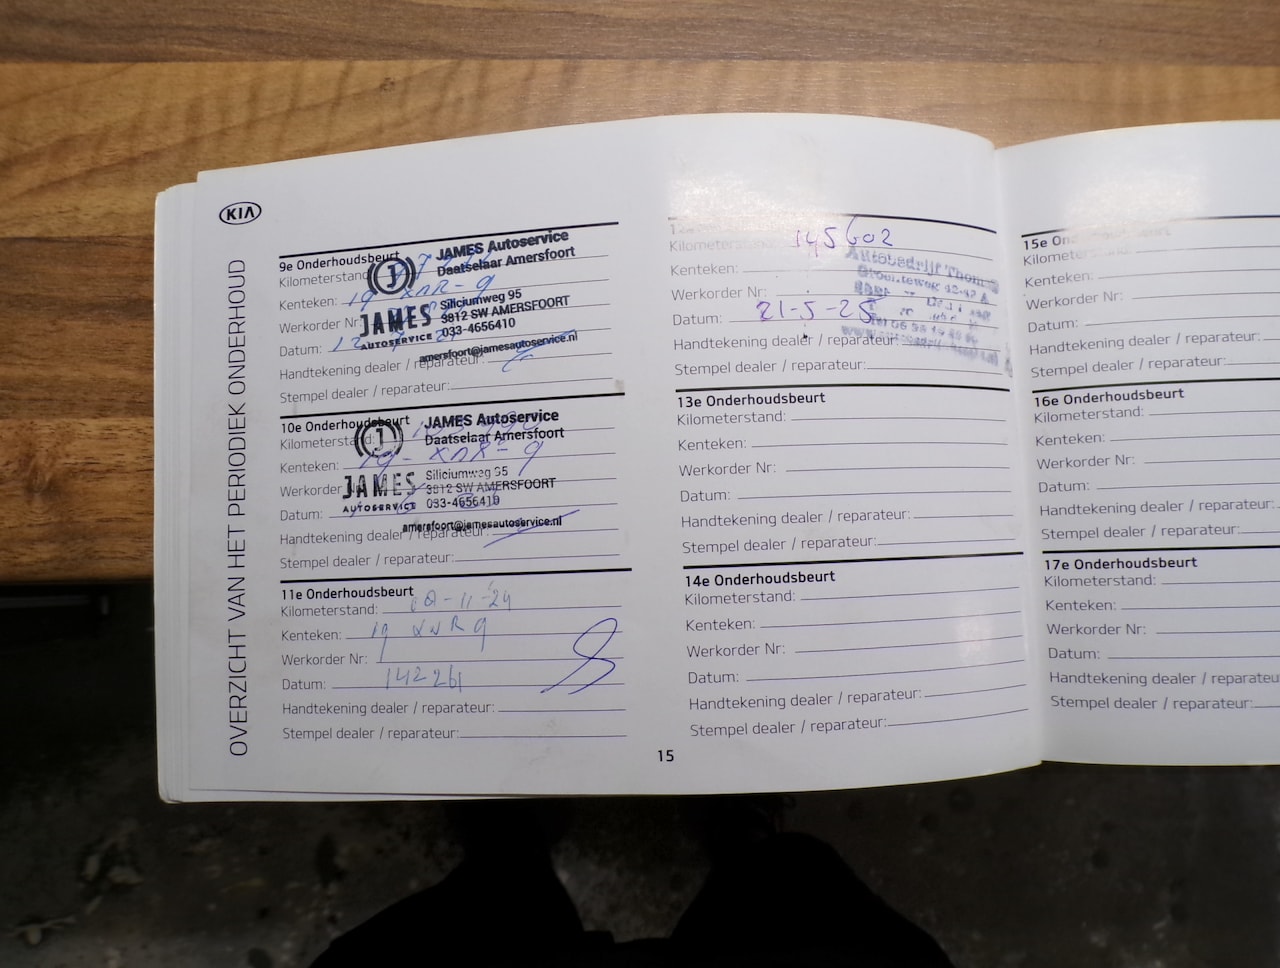 KIA
OVERZICHT VAN HET PERIODIEK ONDERHOUD
9e Onderhoudsbeurt
Kilometerstand
Kenteken: 19 XNR-9
Werkorder Nr:
Datum:
Handtekening dealer / reparateur:
Stempel dealer / reparateur:
JAMES Autoservice
Daatselaar Amersfoort
J
JAMES
AUTOSERVICE
Siliciumweg 95
3812 SW AMERSFOORT
033-4656410
amersfoort@jamesautoservice.nl
10e Onderhoudsbeurt
Kilometerstand:
Kenteken: 19-XNR-9
Werkorder
Datum:
Handtekening dealer / reparateur:
Stempel dealer / reparateur:
JAMES Autoservice
Daatselaar Amersfoort
J
JAMES
AUTOSERVICE
Siliciumweg 95
3812 SW AMERSFOORT
033-4656410
amersfoort@jamesautoservice.nl
11e Onderhoudsbeurt
Kilometerstand: -11-24
Kenteken: 19 XNR 9
Werkorder Nr:
Datum: 142261
Handtekening dealer / reparateur:
Stempel dealer / reparateur:
Kilometerstand: 145602
Kenteken:
Werkorder Nr:
Datum: 21-5-25
Handtekening dealer / reparateur:
Stempel dealer / reparateur:
Autobedrijf
13e Onderhoudsbeurt
Kilometerstand:
Kenteken:
Werkorder Nr:
Datum:
Handtekening dealer / reparateur:
Stempel dealer / reparateur:
14e Onderhoudsbeurt
Kilometerstand:
Kenteken:
Werkorder Nr:
Datum:
Handtekening dealer / reparateur:
Stempel dealer / reparateur:
15
15e
Kilometerstand:
Kenteken:
Werkorder Nr:
Datum:
Handtekening dealer / reparateur:
Stempel dealer / reparateur:
16e Onderhoudsbeurt
Kilometerstand:
Kenteken:
Werkorder Nr:
Datum:
Handtekening dealer / reparateur:
Stempel dealer / reparateur:
17e Onderhoudsbeurt
Kilometerstand:
Kenteken:
Werkorder Nr:
Datum:
Handtekening dealer / reparateu
Stempel dealer / reparateur: